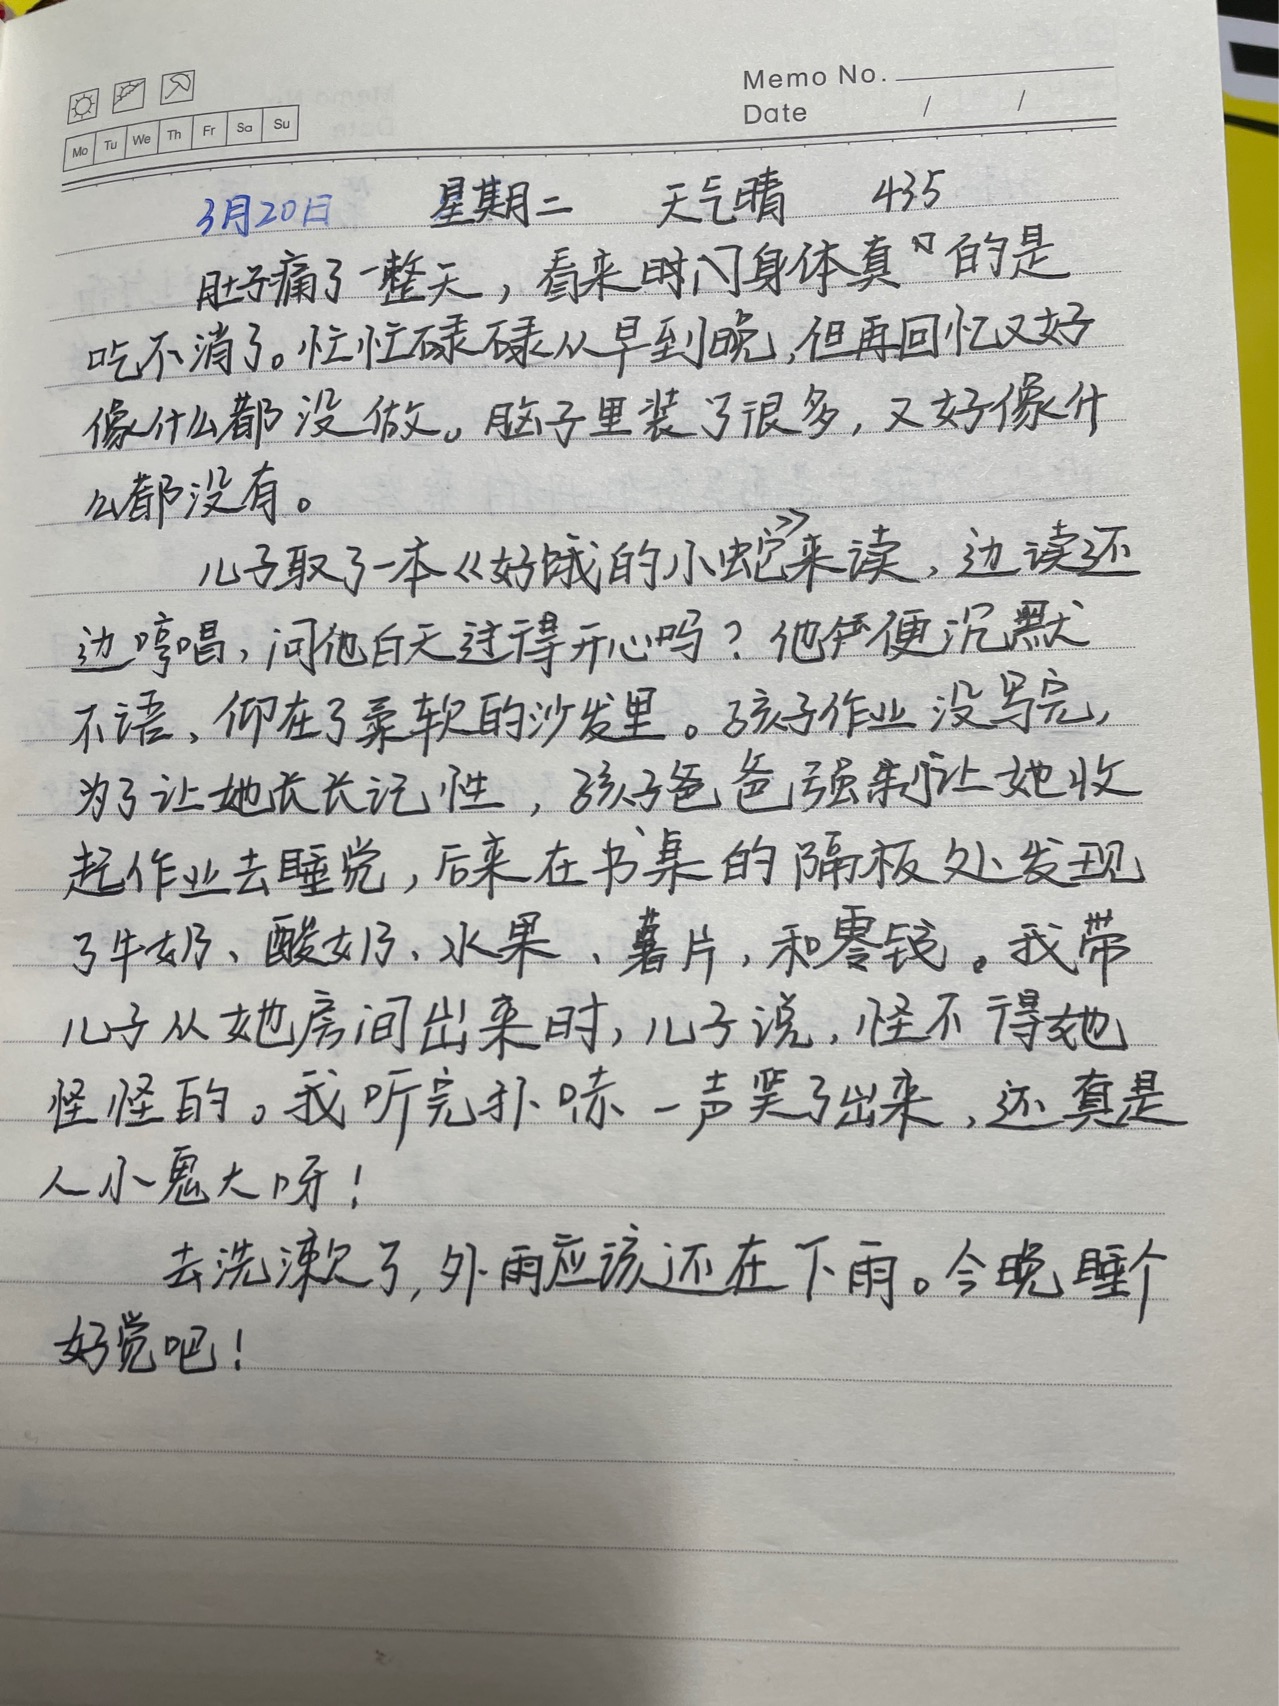 Memo No.
Date / /
Mo Tu We Th Fr Sa Su
3月20日 星期二 天气晴 435
肚子痛了一整天，看来时门身体真的是
吃不消了。忙忙碌碌从早到晚，但再回忆又好
像什么都没做。脑子里装了很多，又好像什
么都没有。
儿子取了一本《好饿的小蛇》来读，边读还
边哼唱，问他白天过得开心吗？他便沉默
不语、仰在了柔软的沙发里。孩子作业没写完，
为了让她长长记性，孩子爸爸强制让她收
起作业去睡觉，后来在书桌的隔板处发现
了牛奶、酸奶、水果、薯片，和零钱。我带
儿子从她房间出来时，儿子说，怪不得她
怪怪的。我听完扑哧一声笑了出来，还真是
人小鬼大呀！
去洗漱了，外雨应该还在下雨。今晚睡个
好觉吧！